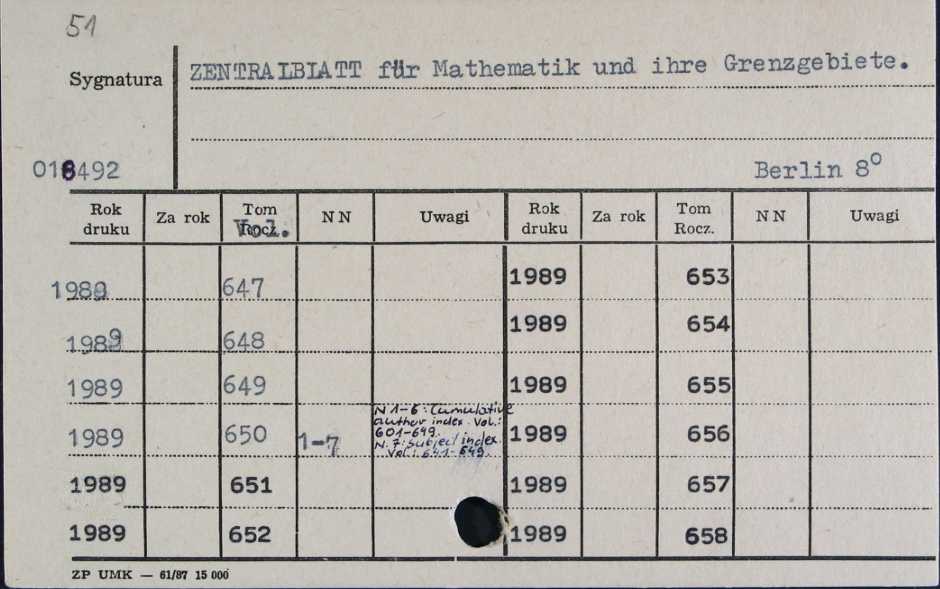 51
Sygnatura
ZENTRALBLATT für Mathematik und ihre Grenzgebiete.
016492
Berlin 8°
Rok druku Za rok Tom Rocz. Vol. NN Uwagi Rok druku Za rok Tom Rocz. NN Uwagi
1989 647 1989 653
1989 648 1989 654
1989 649 1989 655
1989 650 1-7 1989 656
N 1-6: Cumulative
author index. Vol.:
601-649.
N. 7: Subject index.
Vol.: 641-649.
1989 651 1989 657
1989 652 1989 658
ZP UMK — 61/87 15 000